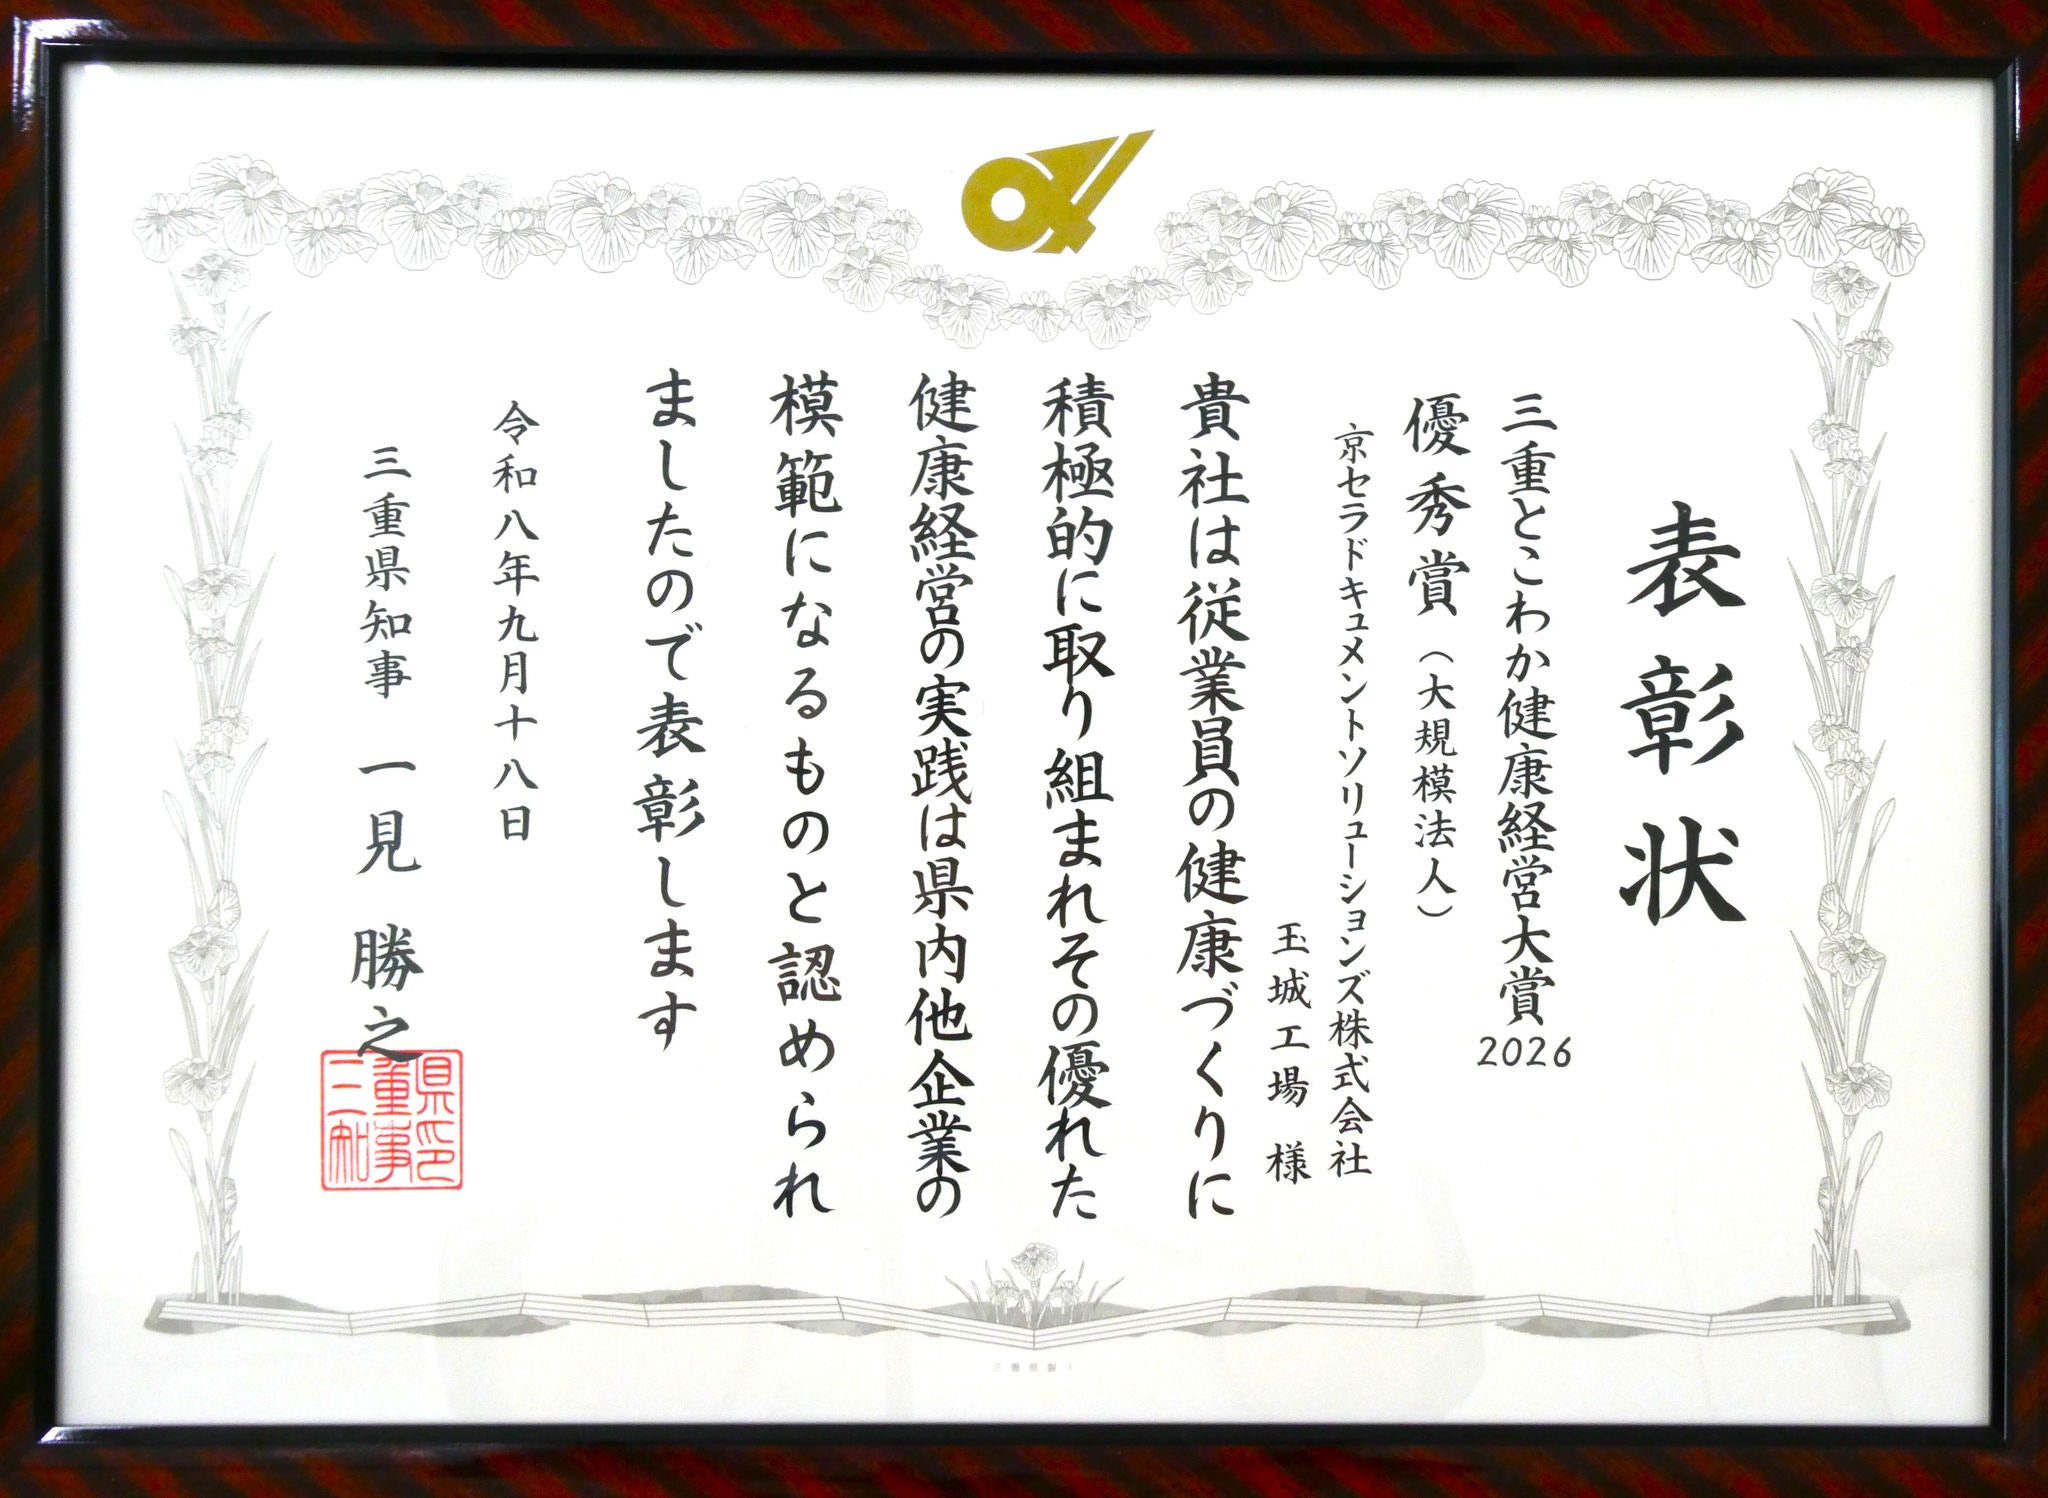 表彰状
三重とこわか健康経営大賞2026
優秀賞（大規模法人）
京セラドキュメントソリューションズ株式会社
玉城工場 様
貴社は従業員の健康づくりに
積極的に取り組まれその優れた
健康経営の実践は県内他企業の
模範になるものと認められ
ましたので表彰します
令和八年九月十八日
三重県知事 一見 勝之
三重県知事印